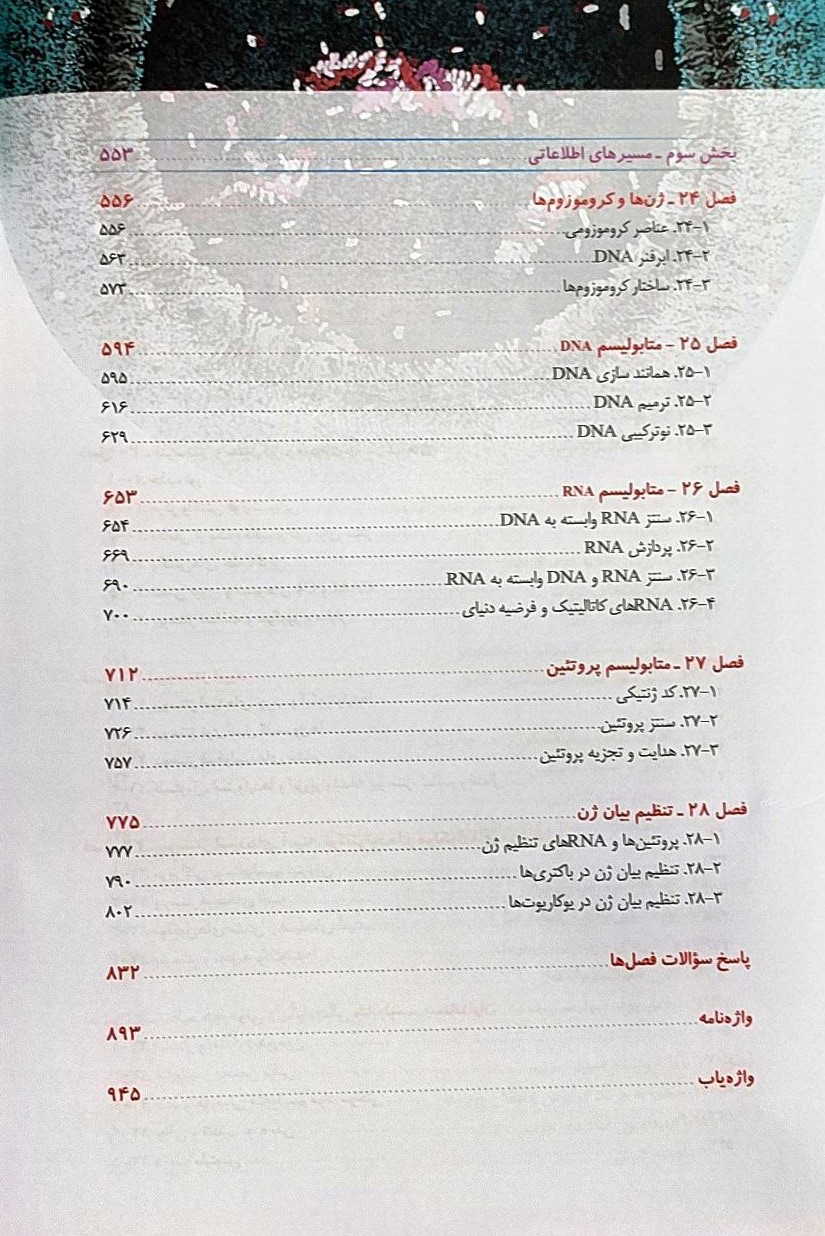 بخش سوم ـ مسیرهای اطلاعاتی ........ ۵۵۳
فصل ۲۴ ـ ژن‌ها و کروموزوم‌ها ........ ۵۵۶
۲۴-۱. عناصر کروموزومی ........ ۵۵۶
۲۴-۲. ابرفنر DNA ........ ۵۶۳
۲۴-۳. ساختار کروموزوم‌ها ........ ۵۷۳
فصل ۲۵ - متابولیسم DNA ........ ۵۹۴
۲۵-۱. همانند سازی DNA ........ ۵۹۵
۲۵-۲. ترمیم DNA ........ ۶۱۶
۲۵-۳. نوترکیبی DNA ........ ۶۲۹
فصل ۲۶ - متابولیسم RNA ........ ۶۵۳
۲۶-۱. سنتز RNA وابسته به DNA ........ ۶۵۴
۲۶-۲. پردازش RNA ........ ۶۶۹
۲۶-۳. سنتز RNA و DNA وابسته به RNA ........ ۶۹۰
۲۶-۴. RNAهای کاتالیتیک و فرضیه دنیای ........ ۷۰۰
فصل ۲۷ ـ متابولیسم پروتئین ........ ۷۱۲
۲۷-۱. کد ژنتیکی ........ ۷۱۴
۲۷-۲. سنتز پروتئین ........ ۷۲۶
۲۷-۳. هدایت و تجزیه پروتئین ........ ۷۵۷
فصل ۲۸ ـ تنظیم بیان ژن ........ ۷۷۵
۲۸-۱. پروتئین‌ها و RNAهای تنظیم ژن ........ ۷۷۷
۲۸-۲. تنظیم بیان ژن در باکتری‌ها ........ ۷۹۰
۲۸-۳. تنظیم بیان ژن در یوکاریوت‌ها ........ ۸۰۲
پاسخ سؤالات فصل‌ها ........ ۸۳۲
واژه‌نامه ........ ۸۹۳
واژه‌یاب ........ ۹۴۵